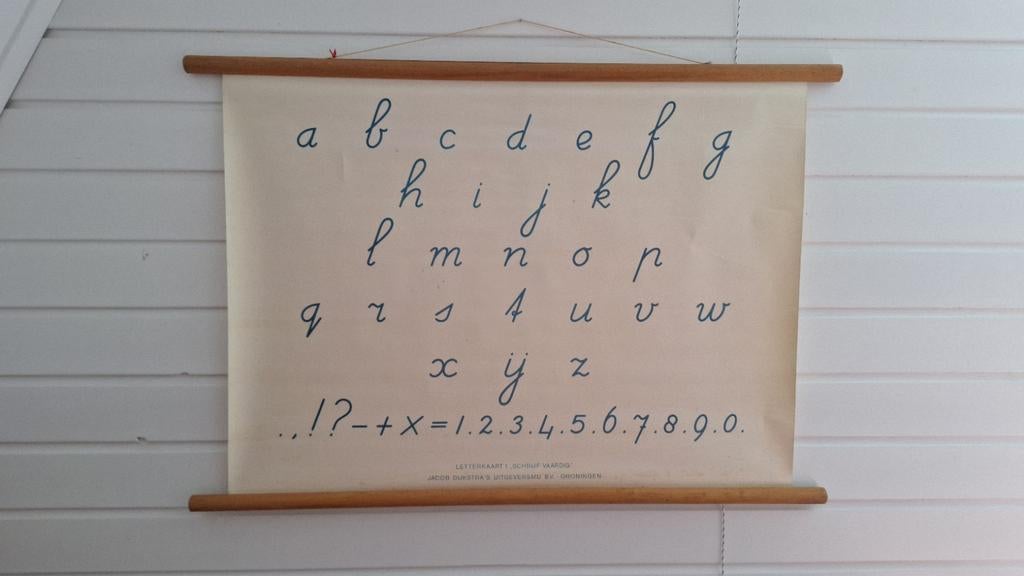 a b c d e f g
h i j k
l m n o p
q r s t u v w
x ij z
.,!?-+x=1.2.3.4.5.6.7.8.9.0.
LETTERKAART 1 „SCHRIJF VAARDIG"
JACOB DIJKSTRA'S UITGEVERSMIJ B.V. GRONINGEN